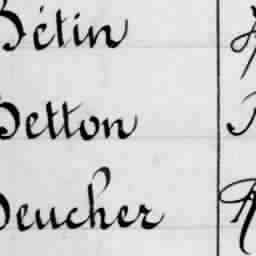 Bétin
Betton
Beucher